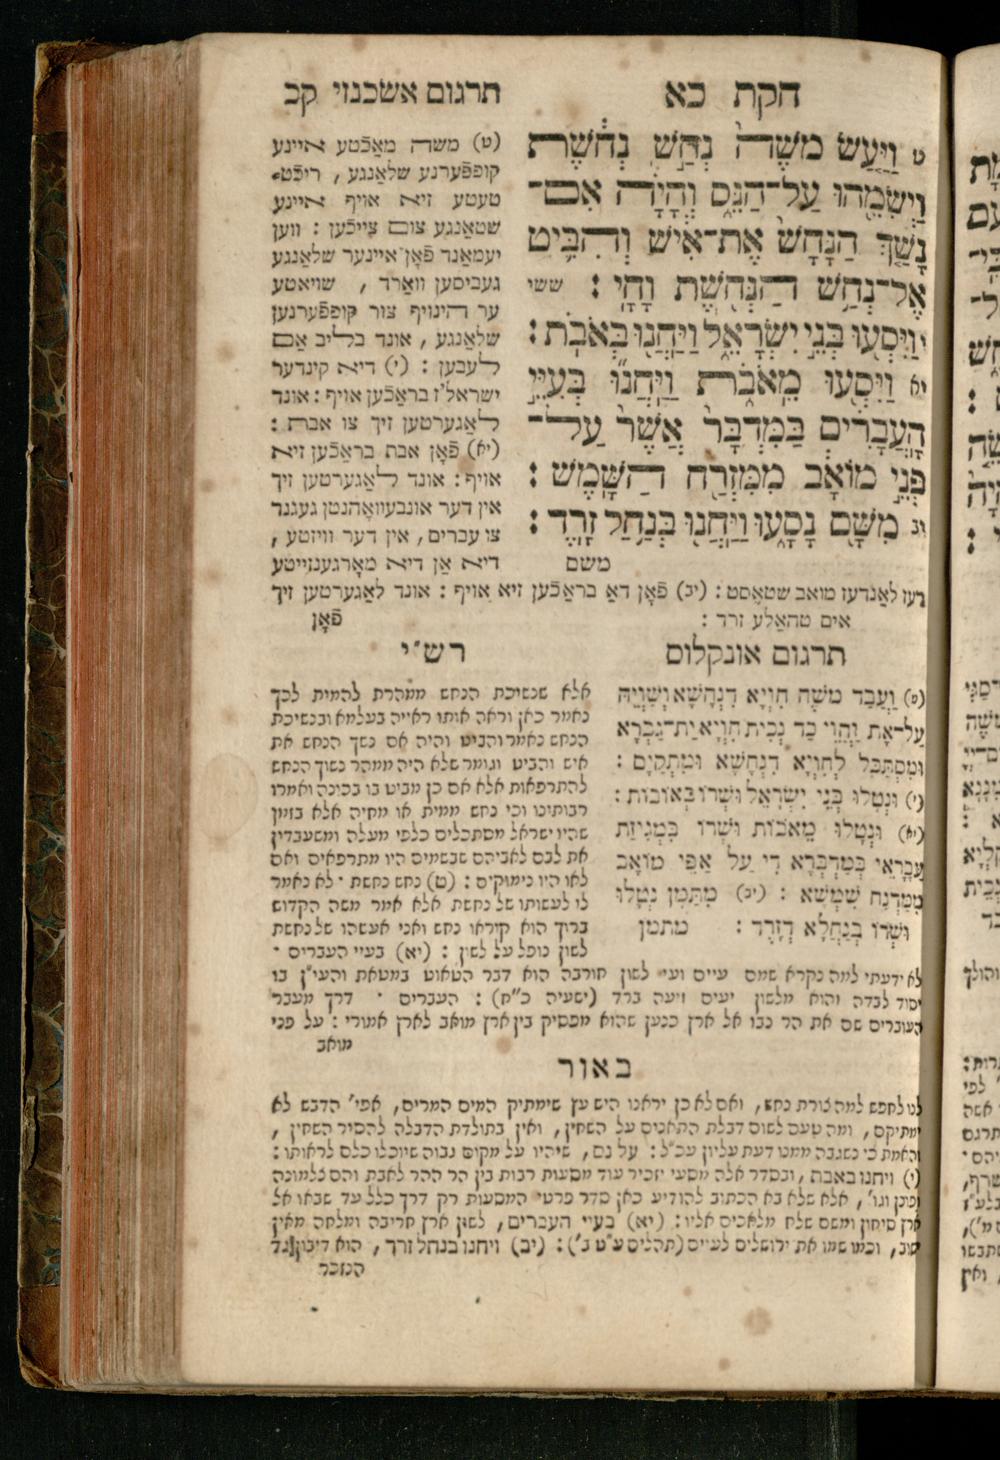 חקת כא
תרגום אשכנזי קכ
ט וַיַּעַשׂ משֶׁה נְחַשׁ נְחֹשֶׁת
וַיְשִׂמֵהוּ עַל־הַנֵּס וְהָיָה אִם־
נָשַׁךְ הַנָּחָשׁ אֶת־אִישׁ וְהִבִּיט
אֶל־נְחַשׁ הַנְּחֹשֶׁת וָחָי׃ ששי
י וַיִּסְעוּ בְּנֵי יִשְׂרָאֵל וַיַּחֲנוּ בְּאֹבֹת׃
יא וַיִּסְעוּ מֵאֹבֹת וַיַּחֲנוּ בְּעִיֵּי
הָעֲבָרִים בַּמִּדְבָּר אֲשֶׁר עַל־
פְּנֵי מוֹאָב מִמִּזְרַח הַשָּׁמֶשׁ׃
יב מִשָּׁם נָסָעוּ וַיַּחֲנוּ בְּנַחַל זָרֶד׃
משם
(ט) משה מאַכֿטע איינע
קופפֿערנע שלאַנגע, ריכֿט־
טעטע זיא אויף איינע
שטאַנגע צום צייכֿען: ווען
יעמאַנד פֿאָן איינער שלאַנגע
געביסען וואַרד, שויאטע
ער הינויף צור קופפֿערנען
שלאַנגע, אונד בליב אַם
לעבען: (י) דיא קינדער
ישראל'ז בראַכֿען אויף: אונד
לאַגערטען זיך צו אבת:
(יא) פֿאָן אבת בראַכֿען זיא
אויף: אונד לאַגערטען זיך
אין דער אונבעוואָהנטן געגנד
צו עברים, אין דער וויזטע,
דיא אַן דיא מאָרגענזייטע
דעז לאַנדעז מואב שטאֶסט: (יב) פֿאָן דאַ בראַכֿען זיא אויף: אונד לאַגערטען זיך
אים טהאַלע זרד:
פֿאָן
תרגום אונקלוס
(ט) וַעֲבַד משֶׁה חִוְיָא דִנְחָשָׁא וְשַׁוְיֵהּ
עַל־אָת וַהֲוֵי כַּד נְכִית חִוְיָא יַת־גַּבְרָא
וּמִסְתַּכַּל לְחִוְיָא דִנְחָשָׁא וּמִתְקַיָּם:
(י) וּנְטָלוּ בְּנֵי יִשְׂרָאֵל וּשְׁרוֹ בְּאוֹבוֹת:
(יא) וּנְטָלוּ מֵאֹבוֹת וּשְׁרוֹ בִּמְגִיזַת
עֲבָרָאֵי בְּמַדְבְּרָא דִי עַל אַפֵּי מוֹאָב
מִמַּדְנַח שִׁמְשָׁא: (יב) מִתַּמָּן נְטָלוּ
וּשְׁרוֹ בְּנַחֲלָא דְזָרֶד: מתמן
רש״י
אלא שנשיכת הנחש ממהרת להמית לכך
נאמר כאן וראה אותו ראייה בעלמא ובנשיכת
הנחש נאמר והביט והיה אם נשך הנחש את
איש והביט וגומר שלא היה ממהר נשוך הנחש
להתרפאות אלא אם כן מביט בו בכוונה ואמרו
רבותינו וכי נחש ממית או מחיה אלא בזמן
שהיו ישראל מסתכלים כלפי מעלה ומשעבדין
את לבם לאביהם שבשמים היו מתרפאים ואם
לאו היו נימוקים: (ט) נחש נחשת · לא נאמר
לו לעשותו של נחשת אלא אמר משה הקדוש
ברוך הוא קוראו נחש ואני אעשהו של נחשת
לשון נופל על לשון: (יא) בעיי העברים ·
לא ידעתי למה נקרא שמם עיים ועי לשון חורבה הוא דבר הטאוט במטאת והעי״ן בו
יסוד לבדה והוא מלשון יעים ויעה ברד (ישעיה כ״ח): העברים · דרך מעבר
העוברים שם את הר נבו אל ארץ כנען שהוא מפסיק בין ארץ מואב לארץ אמורי: על פני
מואב
באור
לנו לחפש למה צורת נחש, ואם לא כן יראנו היש עץ שימתיק המים המרים, אפי' הדבש לא
ימתיקם, ומה טעם לשום דבלת התאנים על השחין, ואין בתולדת הדבלה להסיר השחין,
והאמת כי נשגבה ממנו דעת עליון עכ״ל: על נס, שיהיו על מקום גבוה שיוכלו כלם לראותו:
(י) ויחנו באבת, ובסדר אלה מסעי יזכיר עוד מסעות רבות בין הר ההר לאבת והם צלמונה
ופונן וגו', אלא שלא בא הכתוב להודיע כאן סדר פרטי המסעות רק דרך כלל עד שבאו אל
ארץ סיחון ומשם שלח מלאכים אליו: (יא) בעיי העברים, לשון ארץ חריבה ומלחה מאין
ישוב, וכמו שמו את ירושלים לעיים (תהלים ע״ט ב'): (יב) ויחנו בנחל זרד, הוא דיבון גד
הנזכר